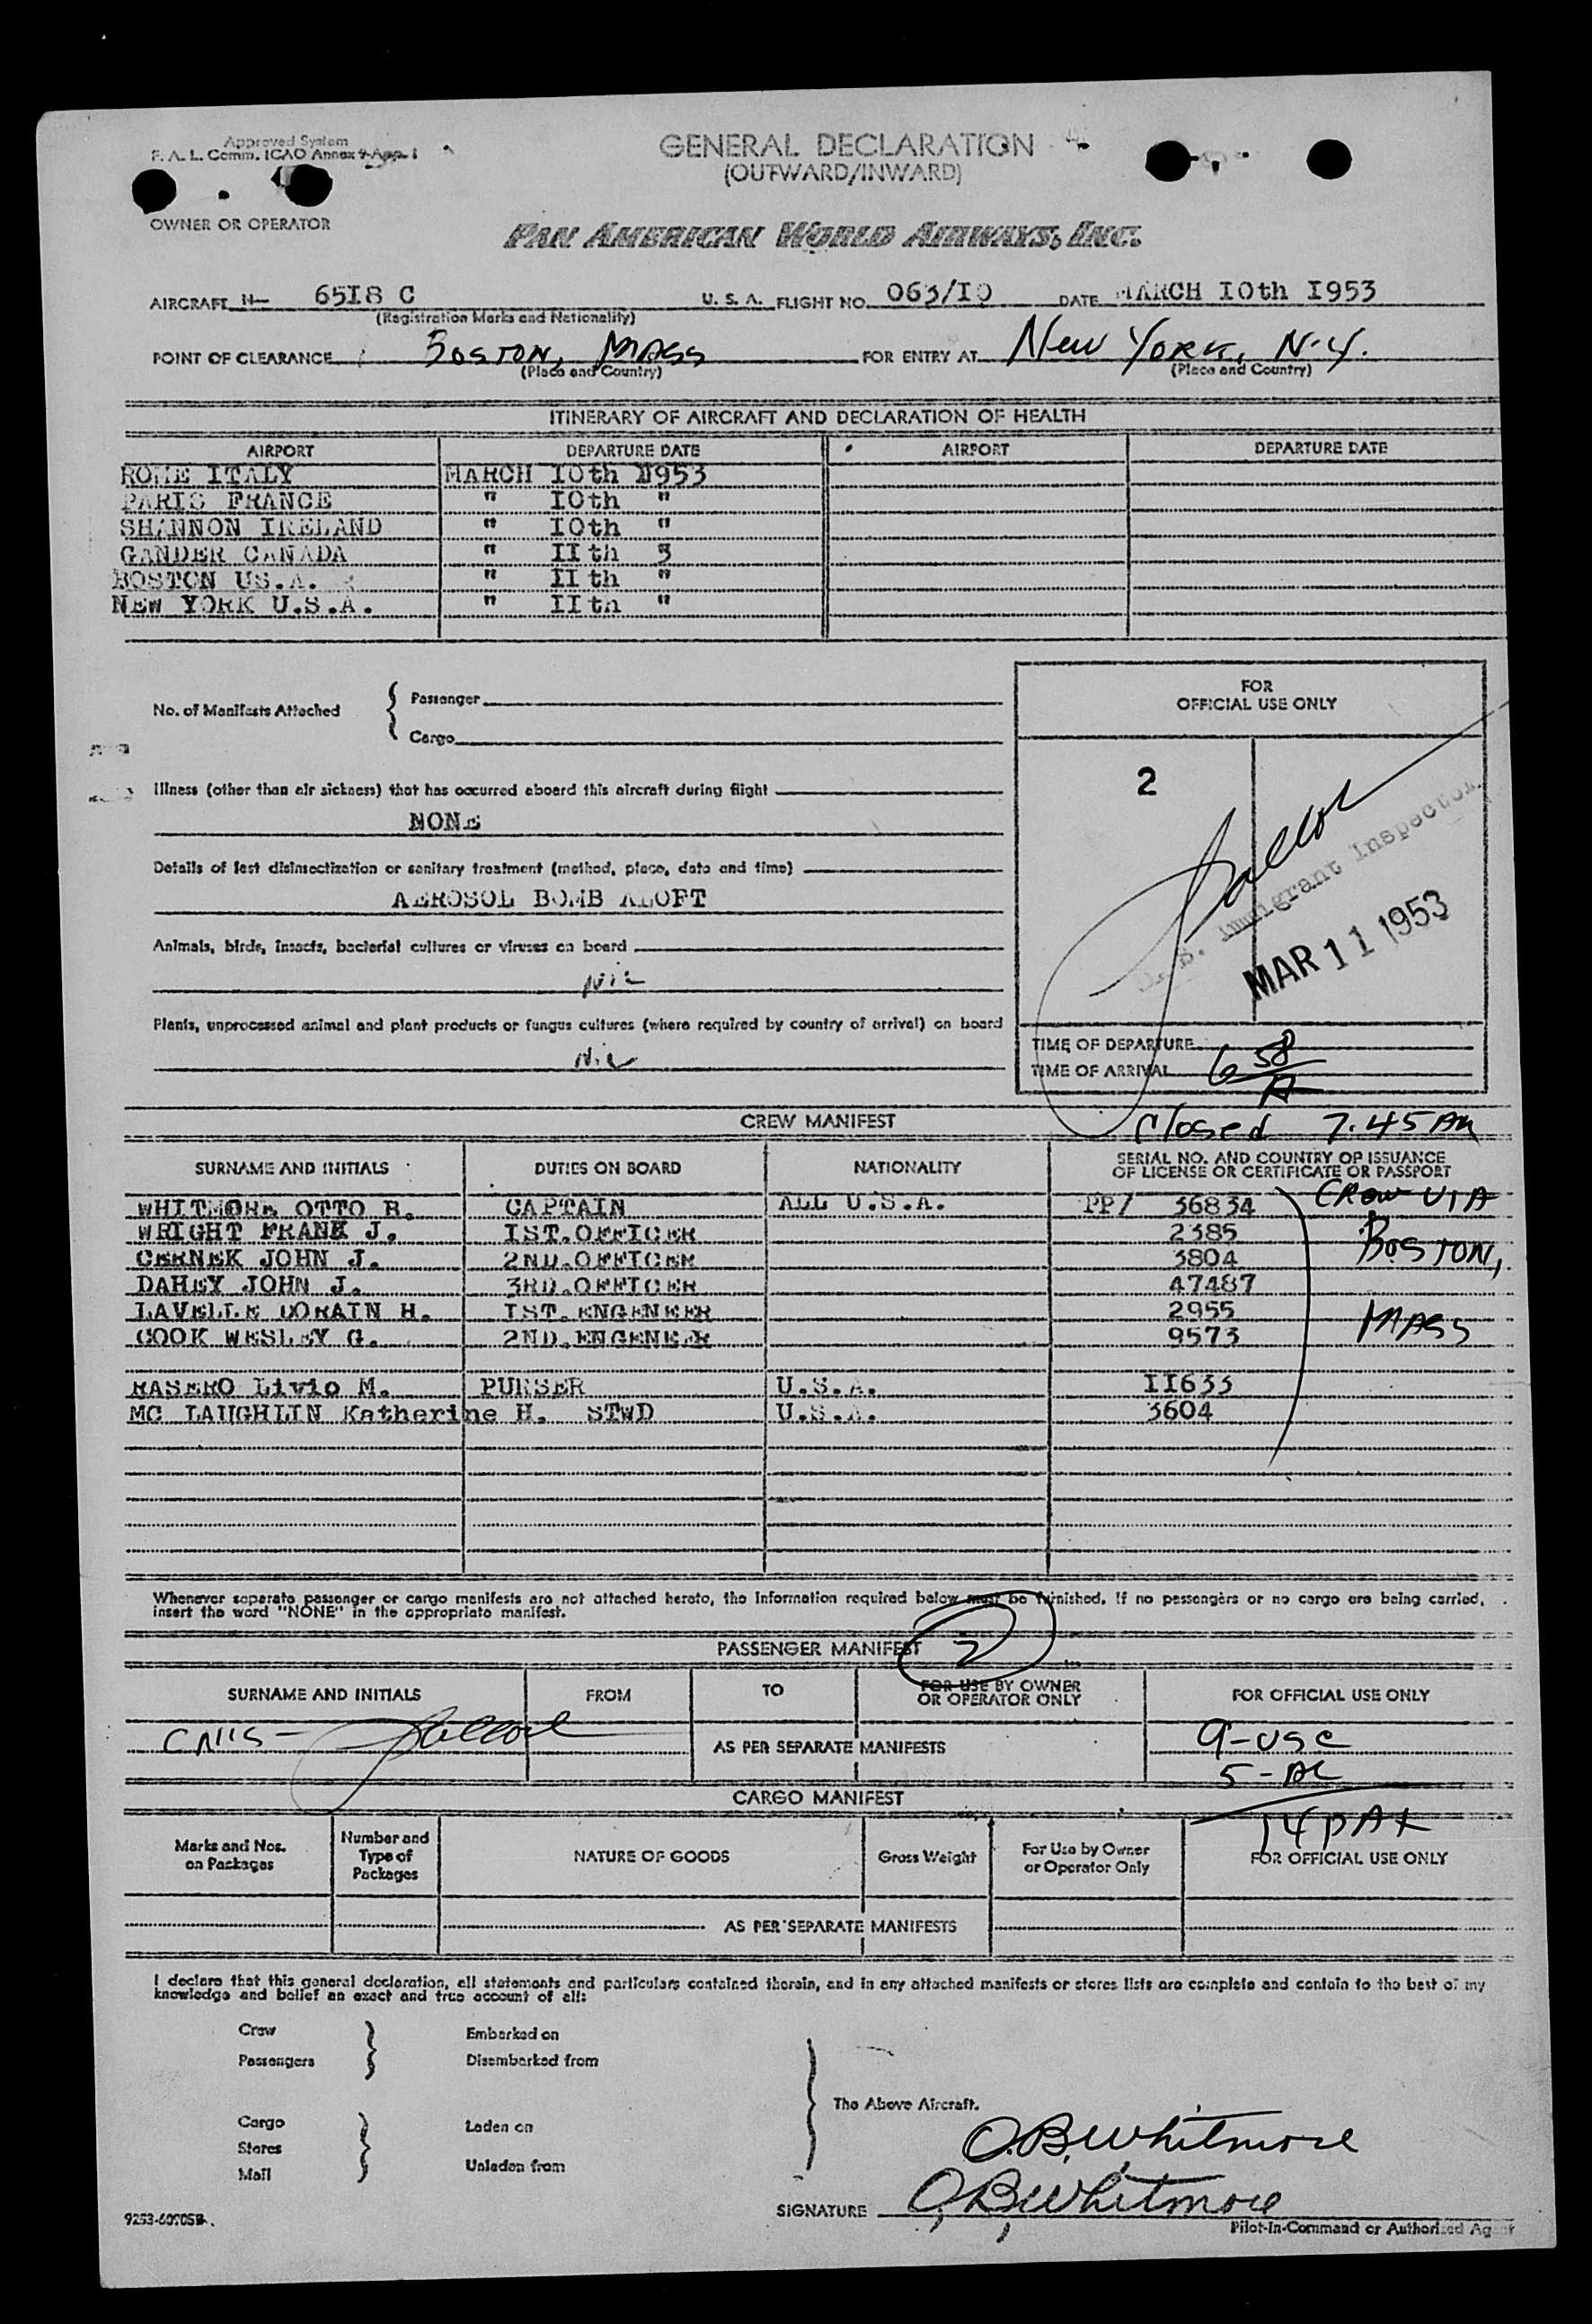 Approved System
F. A. L. Comm. ICAO Annex 9-App. 1
GENERAL DECLARATION
(OUTWARD/INWARD)
OWNER OR OPERATOR
PAN AMERICAN WORLD AIRWAYS, INC.
AIRCRAFT N- 65I8 C U. S. A. FLIGHT NO. 063/I0 DATE MARCH I0th I953
(Registration Marks and Nationality)
POINT OF CLEARANCE BOSTON, MASS FOR ENTRY AT New YORK, N.Y.
(Place and Country) (Place and Country)
ITINERARY OF AIRCRAFT AND DECLARATION OF HEALTH
AIRPORT DEPARTURE DATE AIRPORT DEPARTURE DATE
ROME ITALY MARCH I0th I953
PARIS FRANCE " I0th "
SHANNON IRELAND " I0th "
GANDER CANADA " IIth 3
BOSTON US.A. " IIth "
NEW YORK U.S.A. " IIth "
No. of Manifests Attached { Passenger
Cargo
FOR
OFFICIAL USE ONLY
2
U. S. Immigrant Inspector
MAR 11 1953
Illness (other than air sickness) that has occurred aboard this aircraft during flight
NONE
Details of last disinsectization or sanitary treatment (method, place, date and time)
AEROSOL BOMB ALOFT
Animals, birds, insects, bacterial cultures or viruses on board
Nil
Plants, unprocessed animal and plant products or fungus cultures (where required by country of arrival) on board
Nil
TIME OF DEPARTURE
TIME OF ARRIVAL 6 58 A
CREW MANIFEST
Closed 7.45 AM
SURNAME AND INITIALS DUTIES ON BOARD NATIONALITY SERIAL NO. AND COUNTRY OF ISSUANCE
OF LICENSE OR CERTIFICATE OR PASSPORT
WHITMORE OTTO B. CAPTAIN ALL U.S.A. PP/ 36834 CREW VIA
WRIGHT FRANK J. IST.OFFICER 2385 BOSTON,
CERNEK JOHN J. 2ND.OFFICER 3804
DAHEY JOHN J. 3RD.OFFICER 47487
LAVELLE LORAIN H. IST.ENGENEER 2955 MASS
COOK WESLEY G. 2ND.ENGENEER 9573
RASERO Livio M. PURSER U.S.A. II633
MC LAUGHLIN Katherine H. STWD U.S.A. 3604
Whenever separate passenger or cargo manifests are not attached hereto, the information required below must be furnished. If no passengers or no cargo are being carried,
insert the word "NONE" in the appropriate manifest.
PASSENGER MANIFEST 2
SURNAME AND INITIALS FROM TO FOR USE BY OWNER
OR OPERATOR ONLY FOR OFFICIAL USE ONLY
AS PER SEPARATE MANIFESTS 9-USC
5-AC
CARGO MANIFEST
14 PAX
Marks and Nos.
on Packages Number and
Type of
Packages NATURE OF GOODS Gross Weight For Use by Owner
or Operator Only FOR OFFICIAL USE ONLY
AS PER SEPARATE MANIFESTS
I declare that this general declaration, all statements and particulars contained therein, and in any attached manifests or stores lists are complete and contain to the best of my
knowledge and belief an exact and true account of all:
Crew Embarked on
Passengers Disembarked from
The Above Aircraft.
Cargo Laden on
Stores
Mail Unladen from
O.B.Whitmore
SIGNATURE O.B.Whitmore
Pilot-in-Command or Authorized Agent